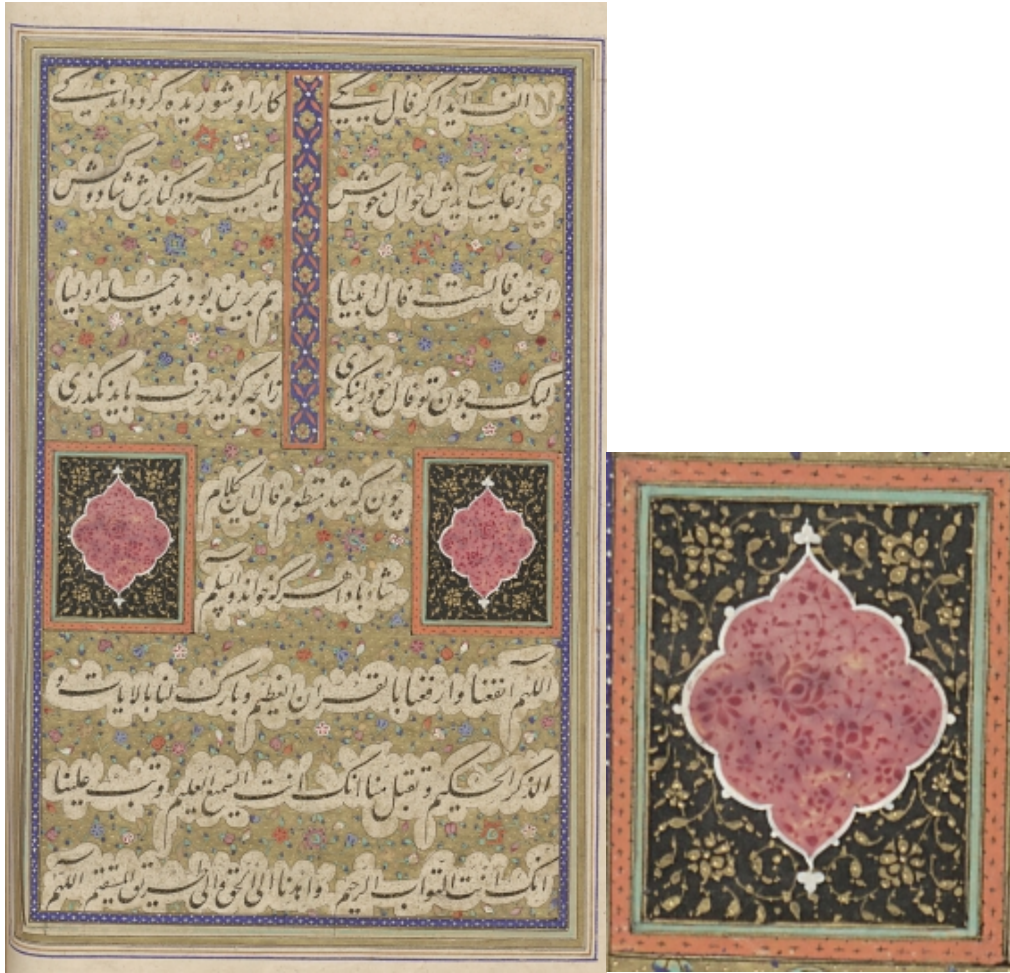 لا الف آید اگر فال یکی کار او شوریده گردد اندکی
ی ز غایب آیدش احوال خوش یا بگیرد در کنارش شاد و کش
اینچنین فالست فال انبیا هم برین بودند جمله اولیا
لیک چون تو فال خود را بنگری زانچه گوید حرف باید نگذری
چون که شد منظوم فال یکلام
شاد باد هر که خواند والسلم
اللهم انفعنا وارفعنا بالقران العظیم وبارک لنا بالایات و
الذکر الحکیم وتقبل منا انک انت السمیع العلیم وتب علینا
انک انت التواب الرحیم واهدنا الی الحق والی طریق المستقیم اللهم